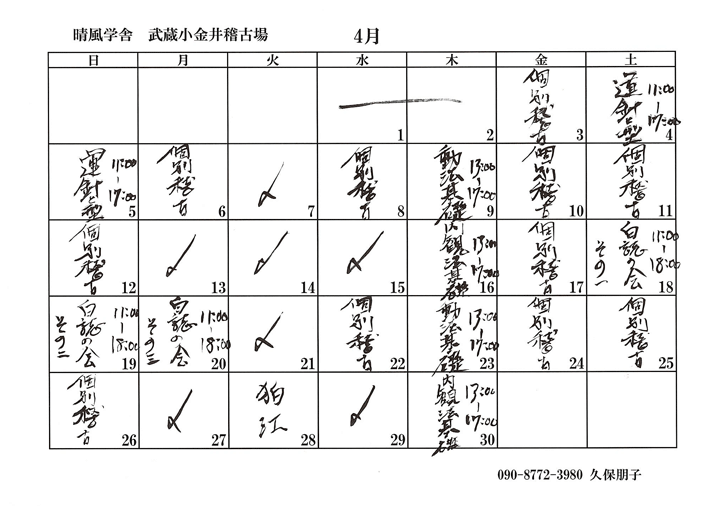 晴風学舎 武蔵小金井稽古場 4月
日 月 火 水 木 金 土
1
2
個別稽古 3
運針と型 11:00-17:00 4
運針と型 11:00-17:00 5
個別稽古 6
〆 7
個別稽古 8
動法基礎 13:00-17:00 9
個別稽古 10
個別稽古 11
個別稽古 12
〆 13
〆 14
〆 15
内観法基礎 13:00-17:00 16
個別稽古 17
白誌の会 その一 11:00-18:00 18
白誌の会 その二 11:00-18:00 19
白誌の会 その三 11:00-18:00 20
〆 21
個別稽古 22
動法基礎 13:00-17:00 23
個別稽古 24
個別稽古 25
個別稽古 26
〆 27
狛江 28
〆 29
内観法基礎 13:00-17:00 30
090-8772-3980 久保朋子